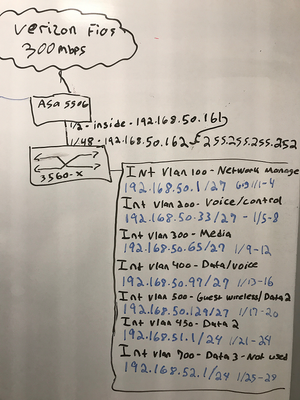 Verizon Fios
300mbps
ASA 5506
1/2 - inside - 192.168.50.161
1/48 - 192.168.50.162 - 255.255.255.252
3560-X
Int Vlan 100 - Network Manage
192.168.50.1/27 1/1-4
Int vlan 200 - Voice/control
192.168.50.33/27 - 1/5-8
Int vlan 300 - Media
192.168.50.65/27 1/9-12
Int vlan 400 - Data/voice
192.168.50.97/27 1/13-16
Int vlan 500 - Guest wireless/Data2
192.168.50.129/27 1/17-20
Int vlan 450 - Data 2
192.168.51.1/24 1/21-24
Int Vlan 700 - Data 3 - Not used
192.168.52.1/24 1/25-28